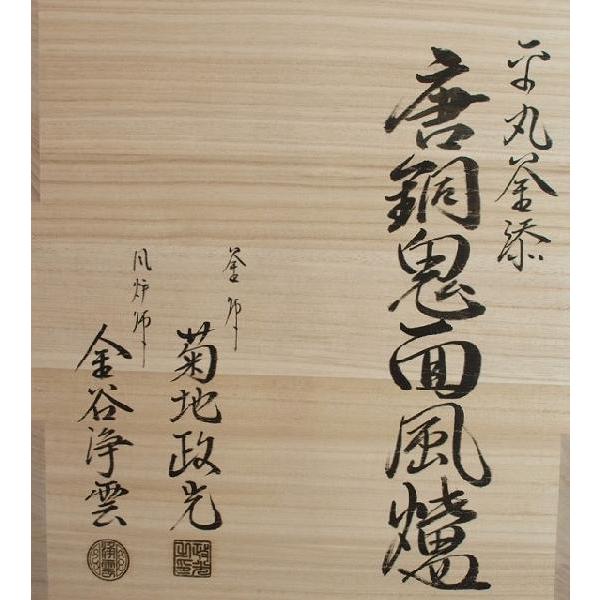 平丸釜添
唐銅鬼面風爐
釜師
菊地政光
風炉師
金谷浄雲